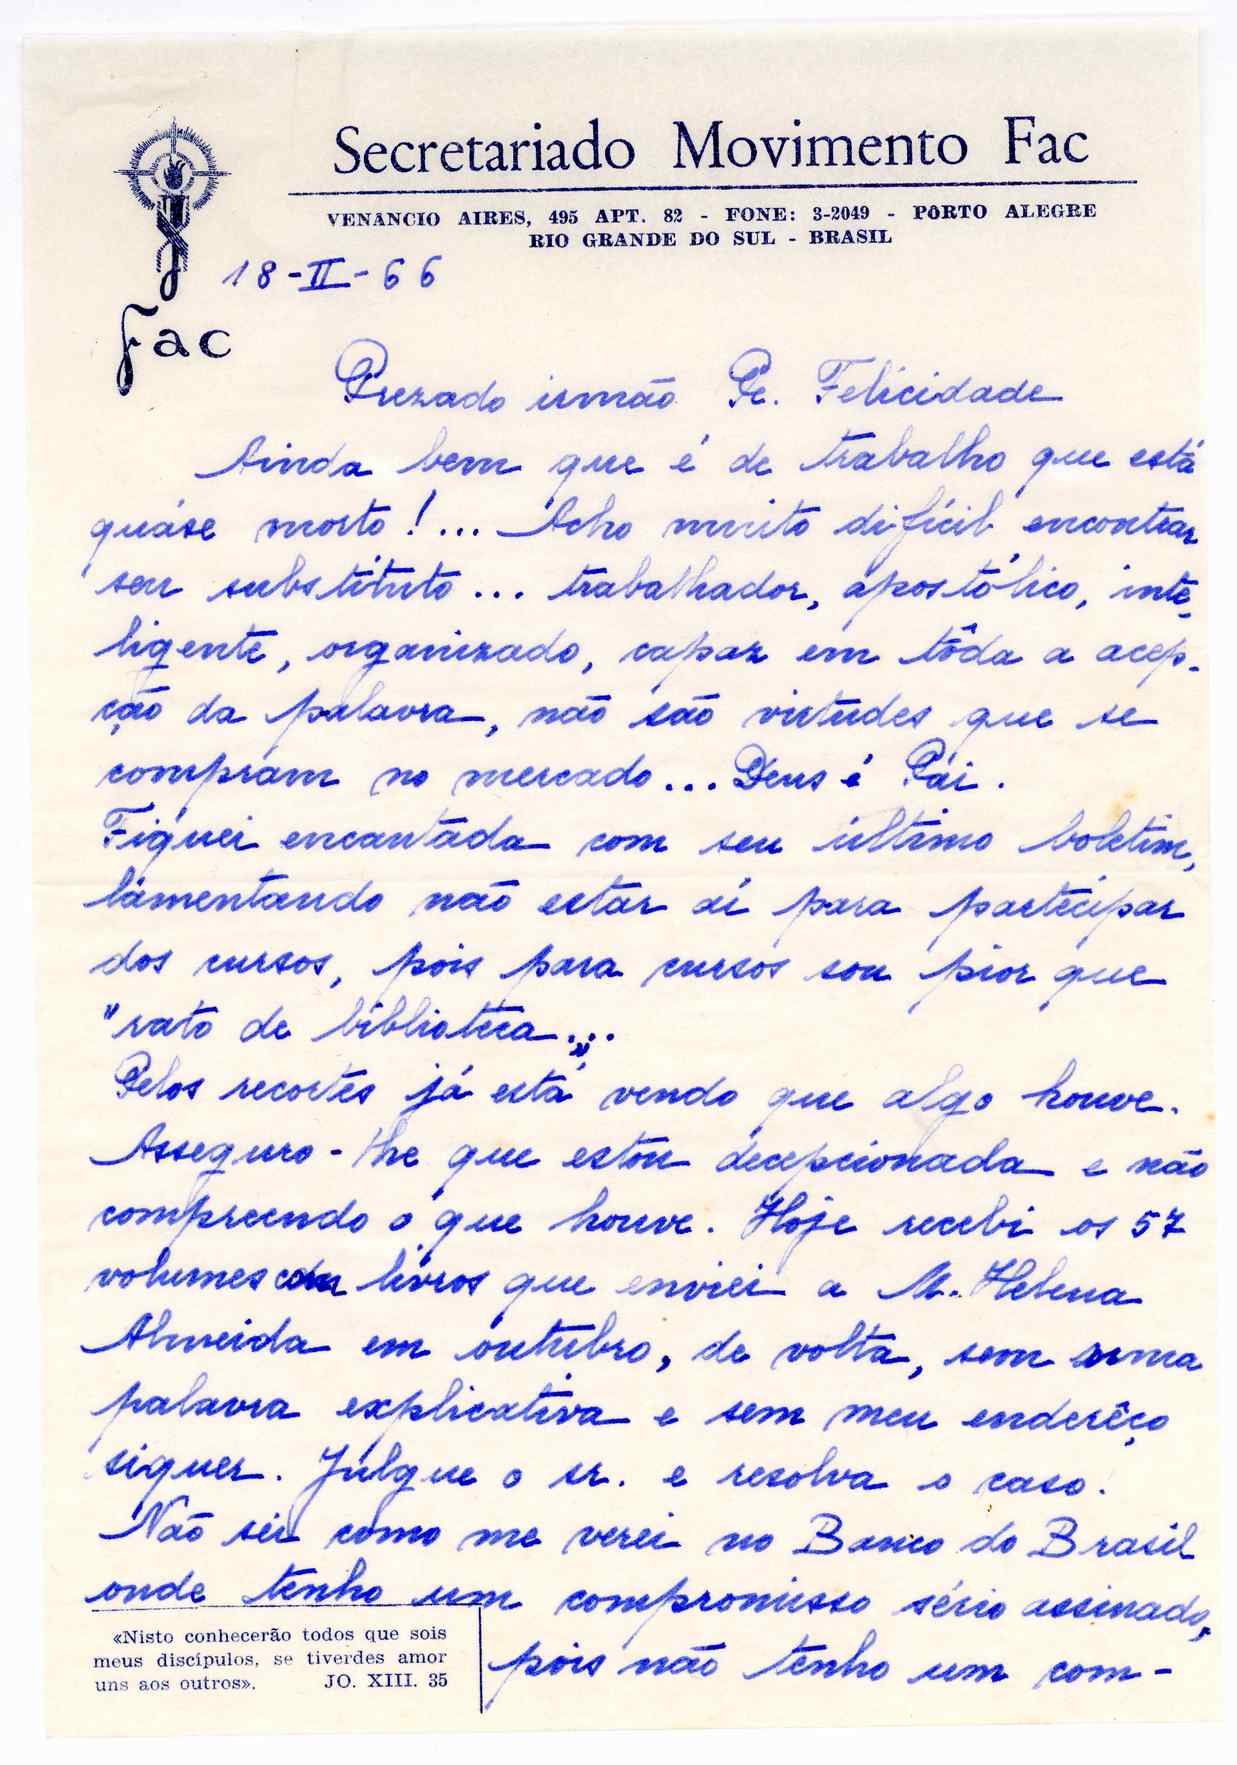 Secretariado Movimento Fac
VENÂNCIO AIRES, 495 APT. 82 - FONE: 3-2049 - PORTO ALEGRE
RIO GRANDE DO SUL - BRASIL
18-II-66
Fac
Prezado irmão Pe. Felicidade
Ainda bem que é de trabalho que está
quáse morto!... Acho muito difícil encontrar
seu substituto... trabalhador, apostólico, inte-
ligente, organizado, capaz em tôda a acep-
ção da palavra, não são virtudes que se
compram no mercado... Deus é Pai.
Fiquei encantada com seu último boletim,
lamentando não estar aí para participar
dos cursos, pois para cursos sou pior que
"rato de biblioteca"...
Pelos recortes já está vendo que algo houve.
Asseguro-lhe que estou decepcionada e não
compreendo o que houve. Hoje recebi os 57
volumes com livros que enviei a M. Helena
Almeida em outubro, de volta, sem uma
palavra explicativa e sem meu enderêço
siquer. Julgue o sr. e resolva o caso.
Não sei como me verei no Banco do Brasil
onde tenho um compromisso sério assinado,
pois não tenho um com-
«Nisto conhecerão todos que sois
meus discípulos, se tiverdes amor
uns aos outros». JO. XIII. 35